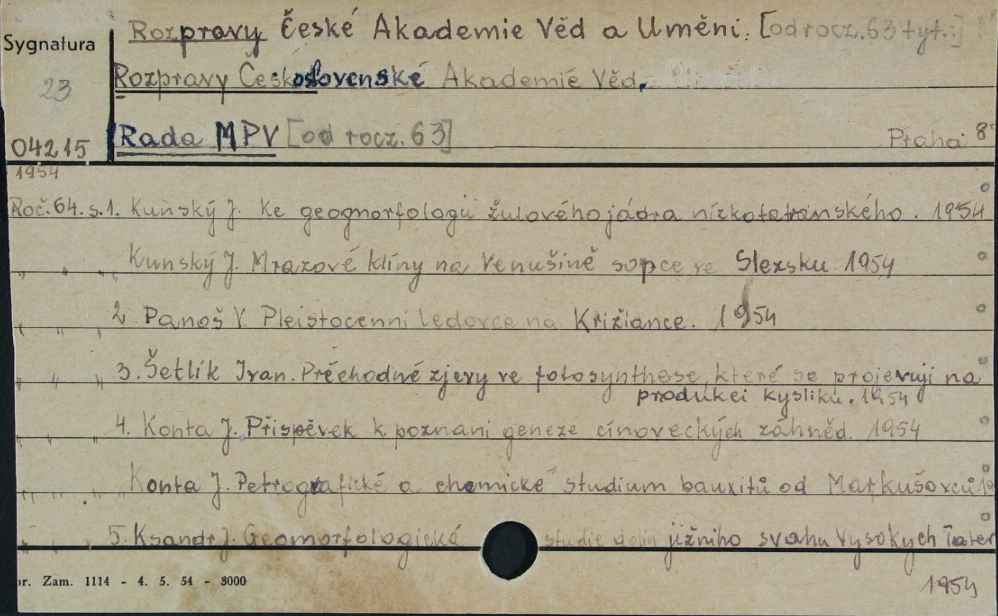 Rozpravy České Akademie Věd a Umění. [od rocz. 63 tyt.:]
Sygnatura
Rozpravy Československé Akademie Věd.
23
Rada MPV [od rocz. 63]
Praha 8°
04215
1954
Roč. 64. s. 1. Kunský J. Ke geognorfologii žulového jádra nízkotatranského. 1954
" " " Kunský J. Mrazové klíny na Venušině sopce ve Slezsku 1954
" " " 2. Panoš V. Pleistocenni ledovce na Križiance. 1954
" " " 3. Šetlík Ivan. Přechodné zjevy ve fotosynthese, které se projevují na
produkci kyslíku. 1954
" " " 4. Konta J. Příspěvek k poznání geneze cínoveckých záhněd. 1954
" " " Konta J. Petrografické a chemické studium bauxitů od Markušovců 19
" " " 5. Ksandr J. Geomorfologická studie dolin jižního svahu Vysokych Tater
1954
nr. Zam. 1114 - 4. 5. 54 - 8000